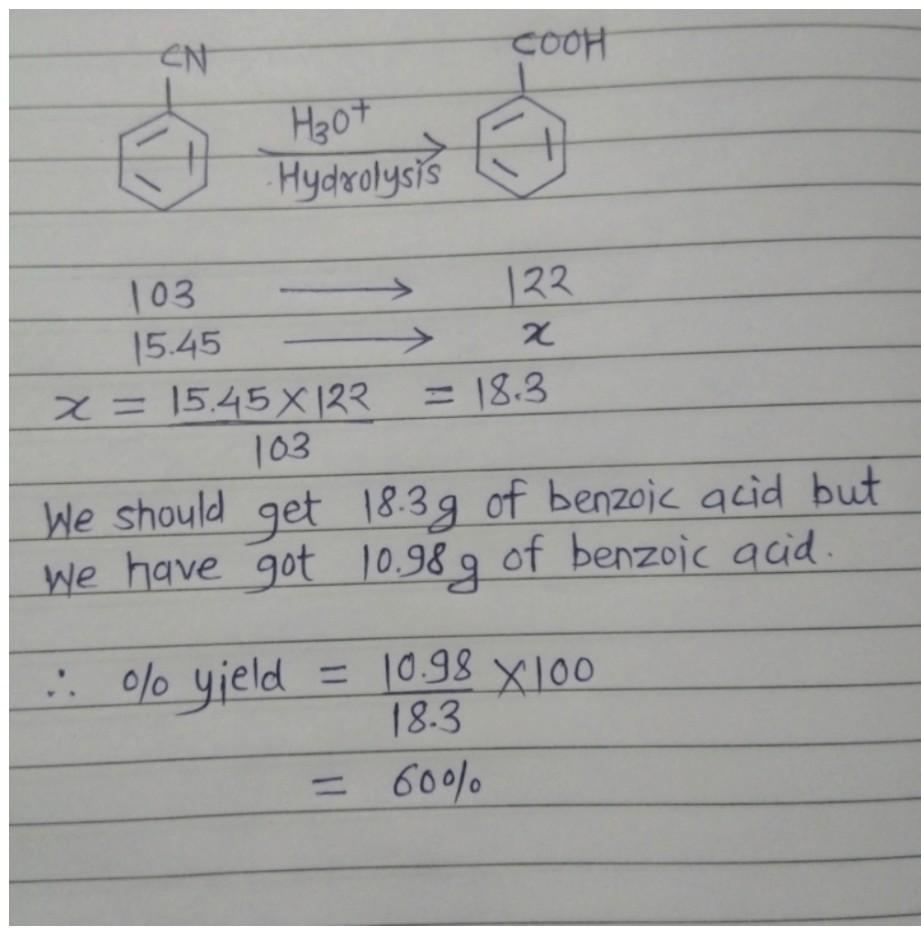 CN COOH
H3O+
Hydrolysis
103 ⟶ 122
15.45 ⟶ x
x = 15.45×122 = 18.3
103
We should get 18.3g of benzoic acid but
We have got 10.98g of benzoic acid.
∴ % yield = 10.98 ×100
18.3
= 60%